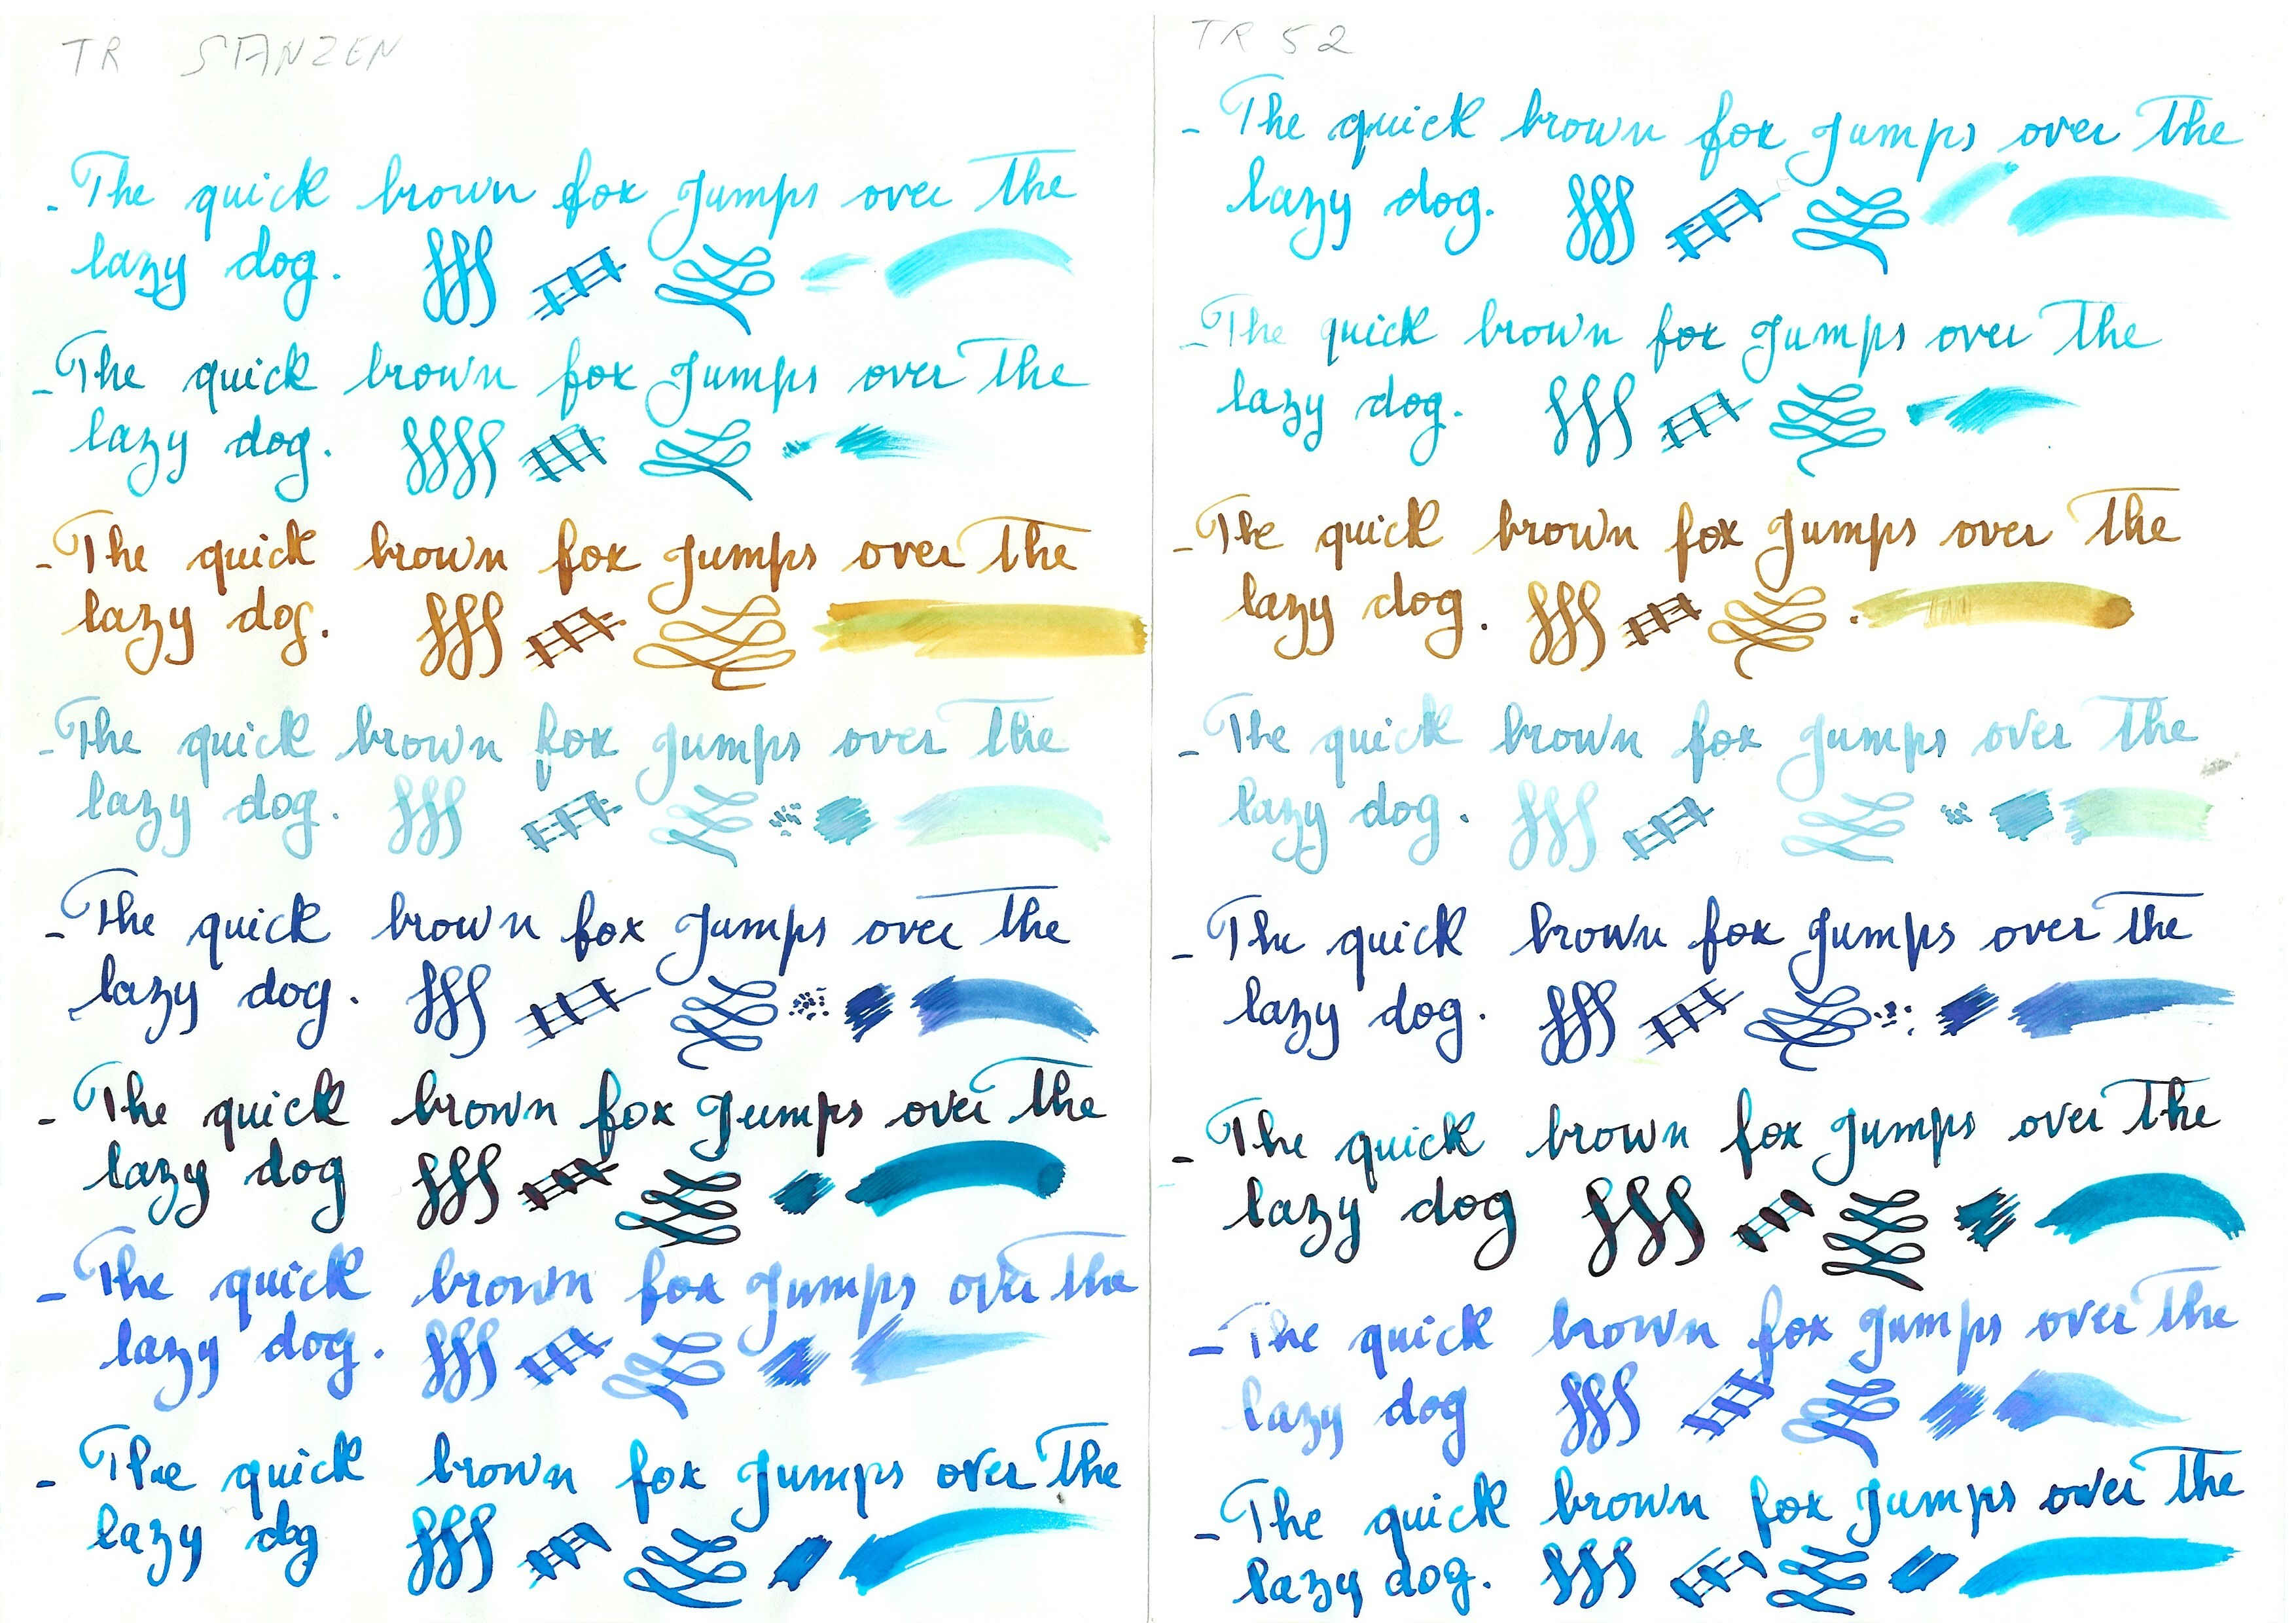 TR STANZEN
- The quick brown fox Jumps over the
lazy dog.
- The quick brown fox Jumps over the
lazy dog.
- The quick brown fox Jumps over the
lazy dog.
- The quick brown fox Jumps over the
lazy dog.
- The quick brown fox Jumps over the
lazy dog.
- The quick brown fox Jumps over the
lazy dog
- The quick brown fox Jumps over the
lazy dog.
- The quick brown fox Jumps over the
lazy dog
TR 52
- The quick brown fox Jumps over the
lazy dog.
- The quick brown fox Jumps over the
lazy dog.
- The quick brown fox Jumps over the
lazy dog.
- The quick brown fox Jumps over the
lazy dog.
- The quick brown fox Jumps over the
lazy dog.
- The quick brown fox Jumps over the
lazy dog
- The quick brown fox Jumps over the
lazy dog
- The quick brown fox Jumps over the
lazy dog.